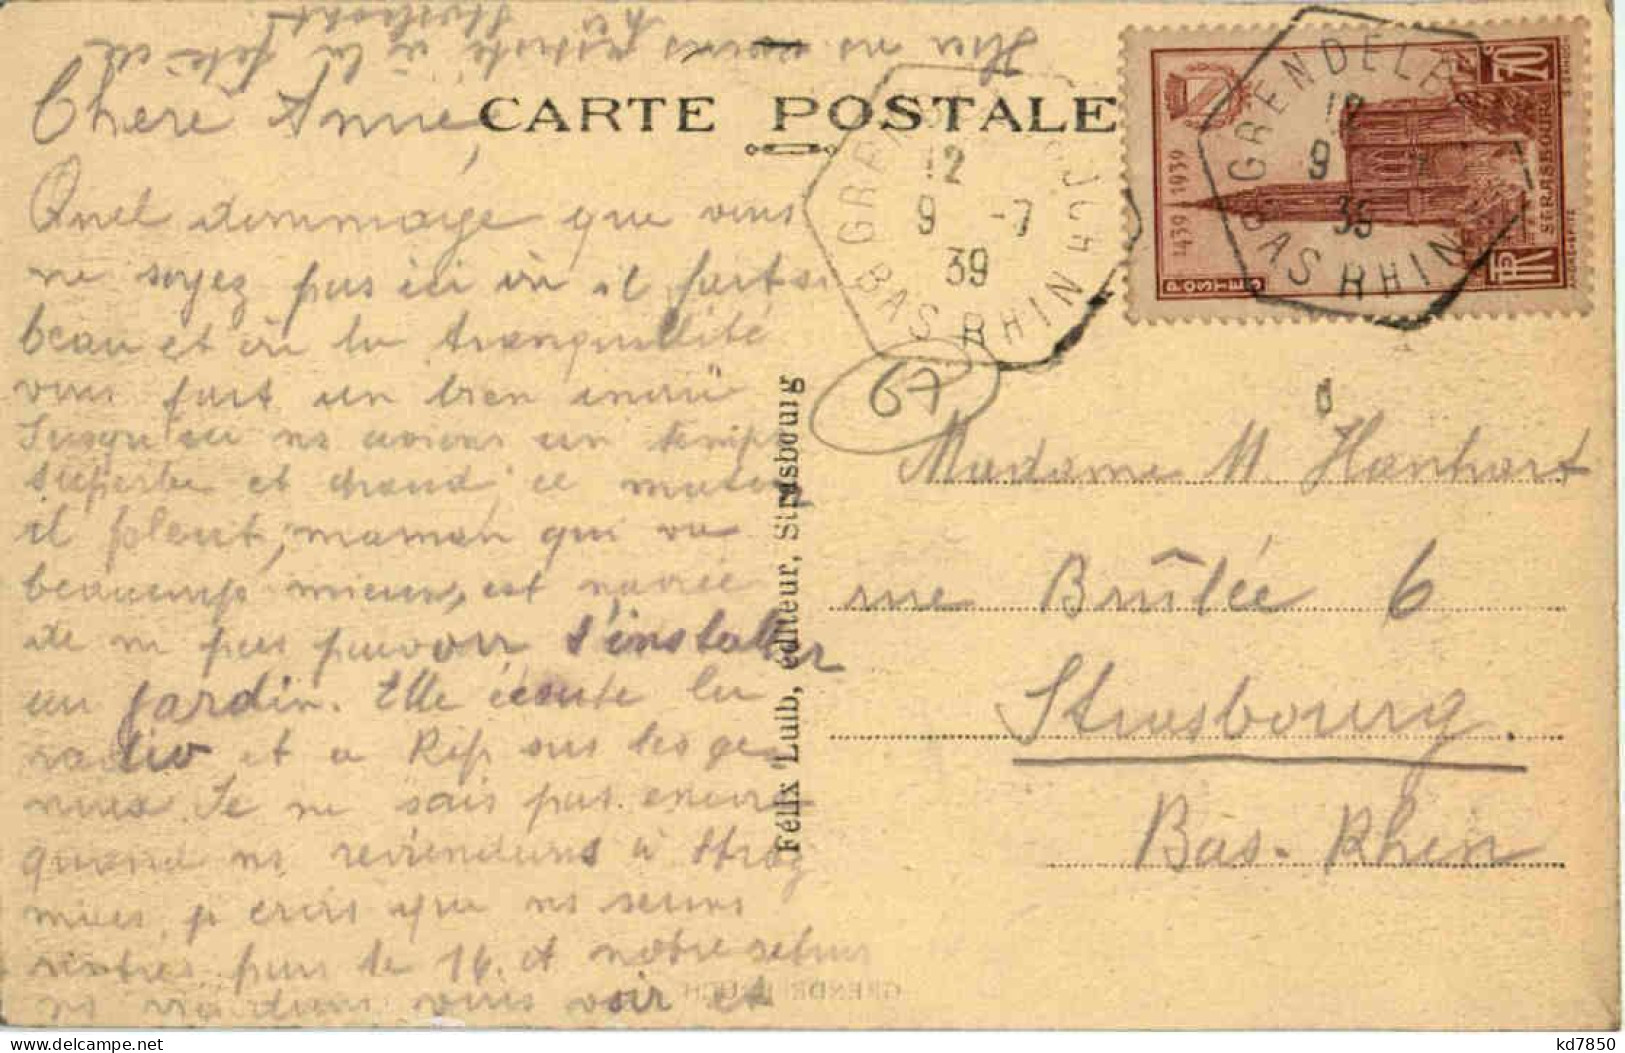 Hier
Chère Année
CARTE POSTALE
Quel dommage que vous
ne soyez pas ici où il fait si
beau et où la tranquillité
vous fait un bien inouï
Jusqu'ici ns avions un temps
superbe et chaud, ce matin
il pleut, maman qui va
beaucoup mieux, est navrée
de ne pas pouvoir s'installer
au jardin. Elle écoute la
radio et a Rip sur les ge-
noux. Je ne sais pas encore
quand ns reviendrons à Strbg
mais je crois que ns serons
rentrés pour le 14. et notre retour
ns viendrons vous voir et
GRENDELBRUCH
12
9 -7
39
BAS RHIN
GRENDELBR
12
9 7
39
BAS RHIN
1439 1939
POSTES
70c
STRASBOURG
67
Félix Luib, éditeur, Strasbourg
Madame M. Hanhart
rue Brûlée 6
Strasbourg.
Bas-Rhin
GRENDELBRUCH
kd7850